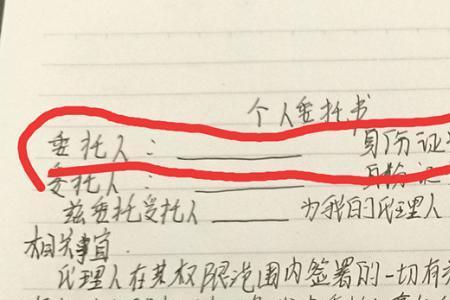 个人委托书
委托人：________ 身份证
受托人：________ 身份证
兹委托受托人________为我的代理人
相关事宜
代理人在其权限范围内签署的一切有